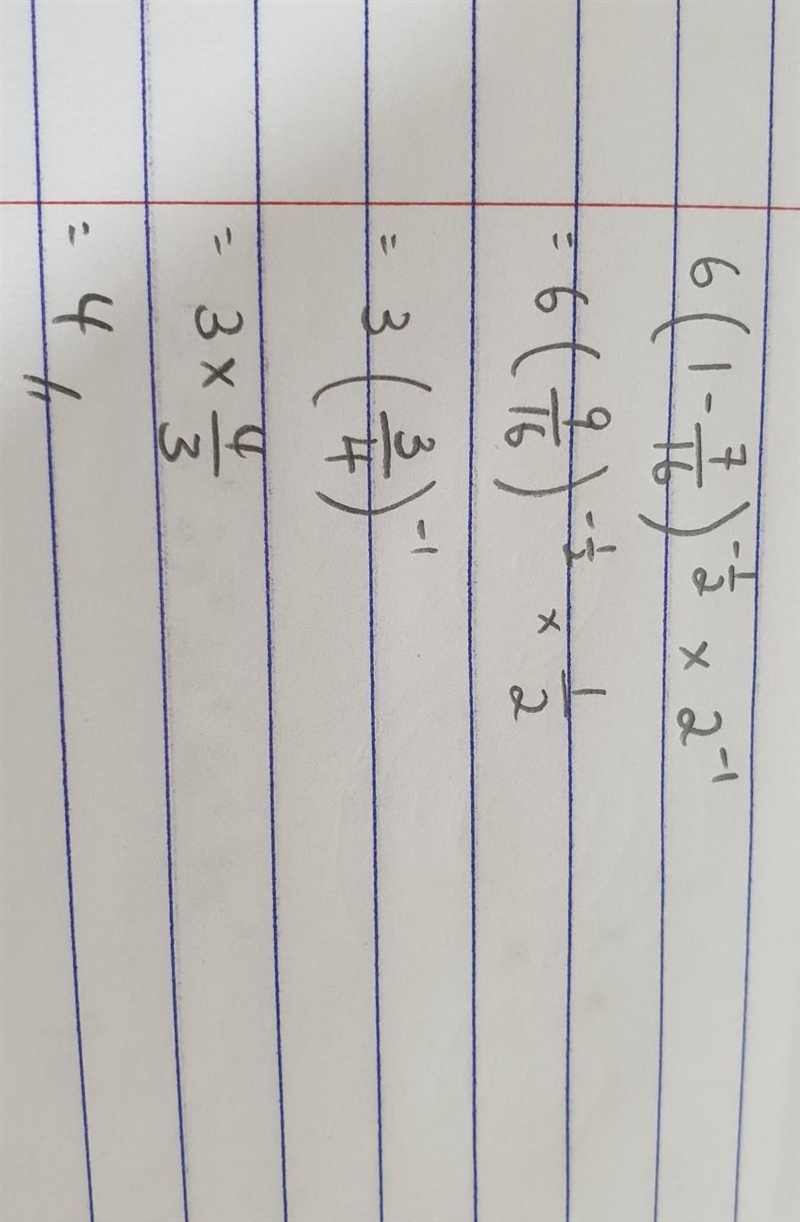 6(1-7/16)^-1/2 × 2^-1
= 6(9/16)^-1/2 × 1/2
= 3(3/4)^-1
= 3 × 4/3
= 4 //